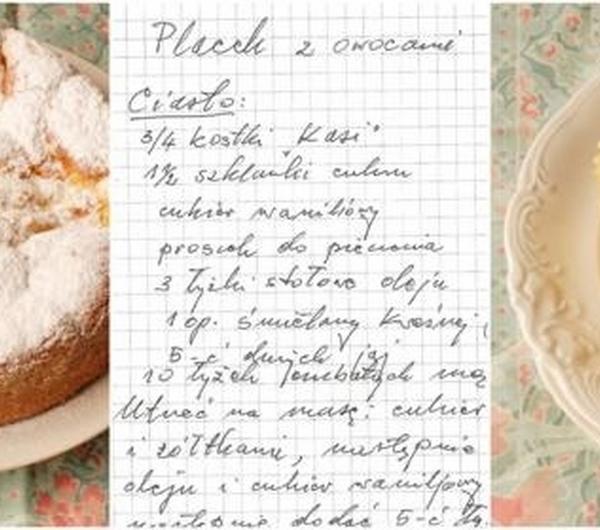 Placek z owocami
Ciasto:
3/4 kostki "Kasi"
1 1/2 szklanki cukru
cukier waniliowy
proszek do pieczenia
3 łyżki stołowe oleju
1 op. śmietany kwaśnej (
5-ć dużych jaj
10 łyżek mą
Utrzeć na masę: cukier
i żółtkami, następnie
oleju i cukier waniliowy
następnie dodać 5-ć ły